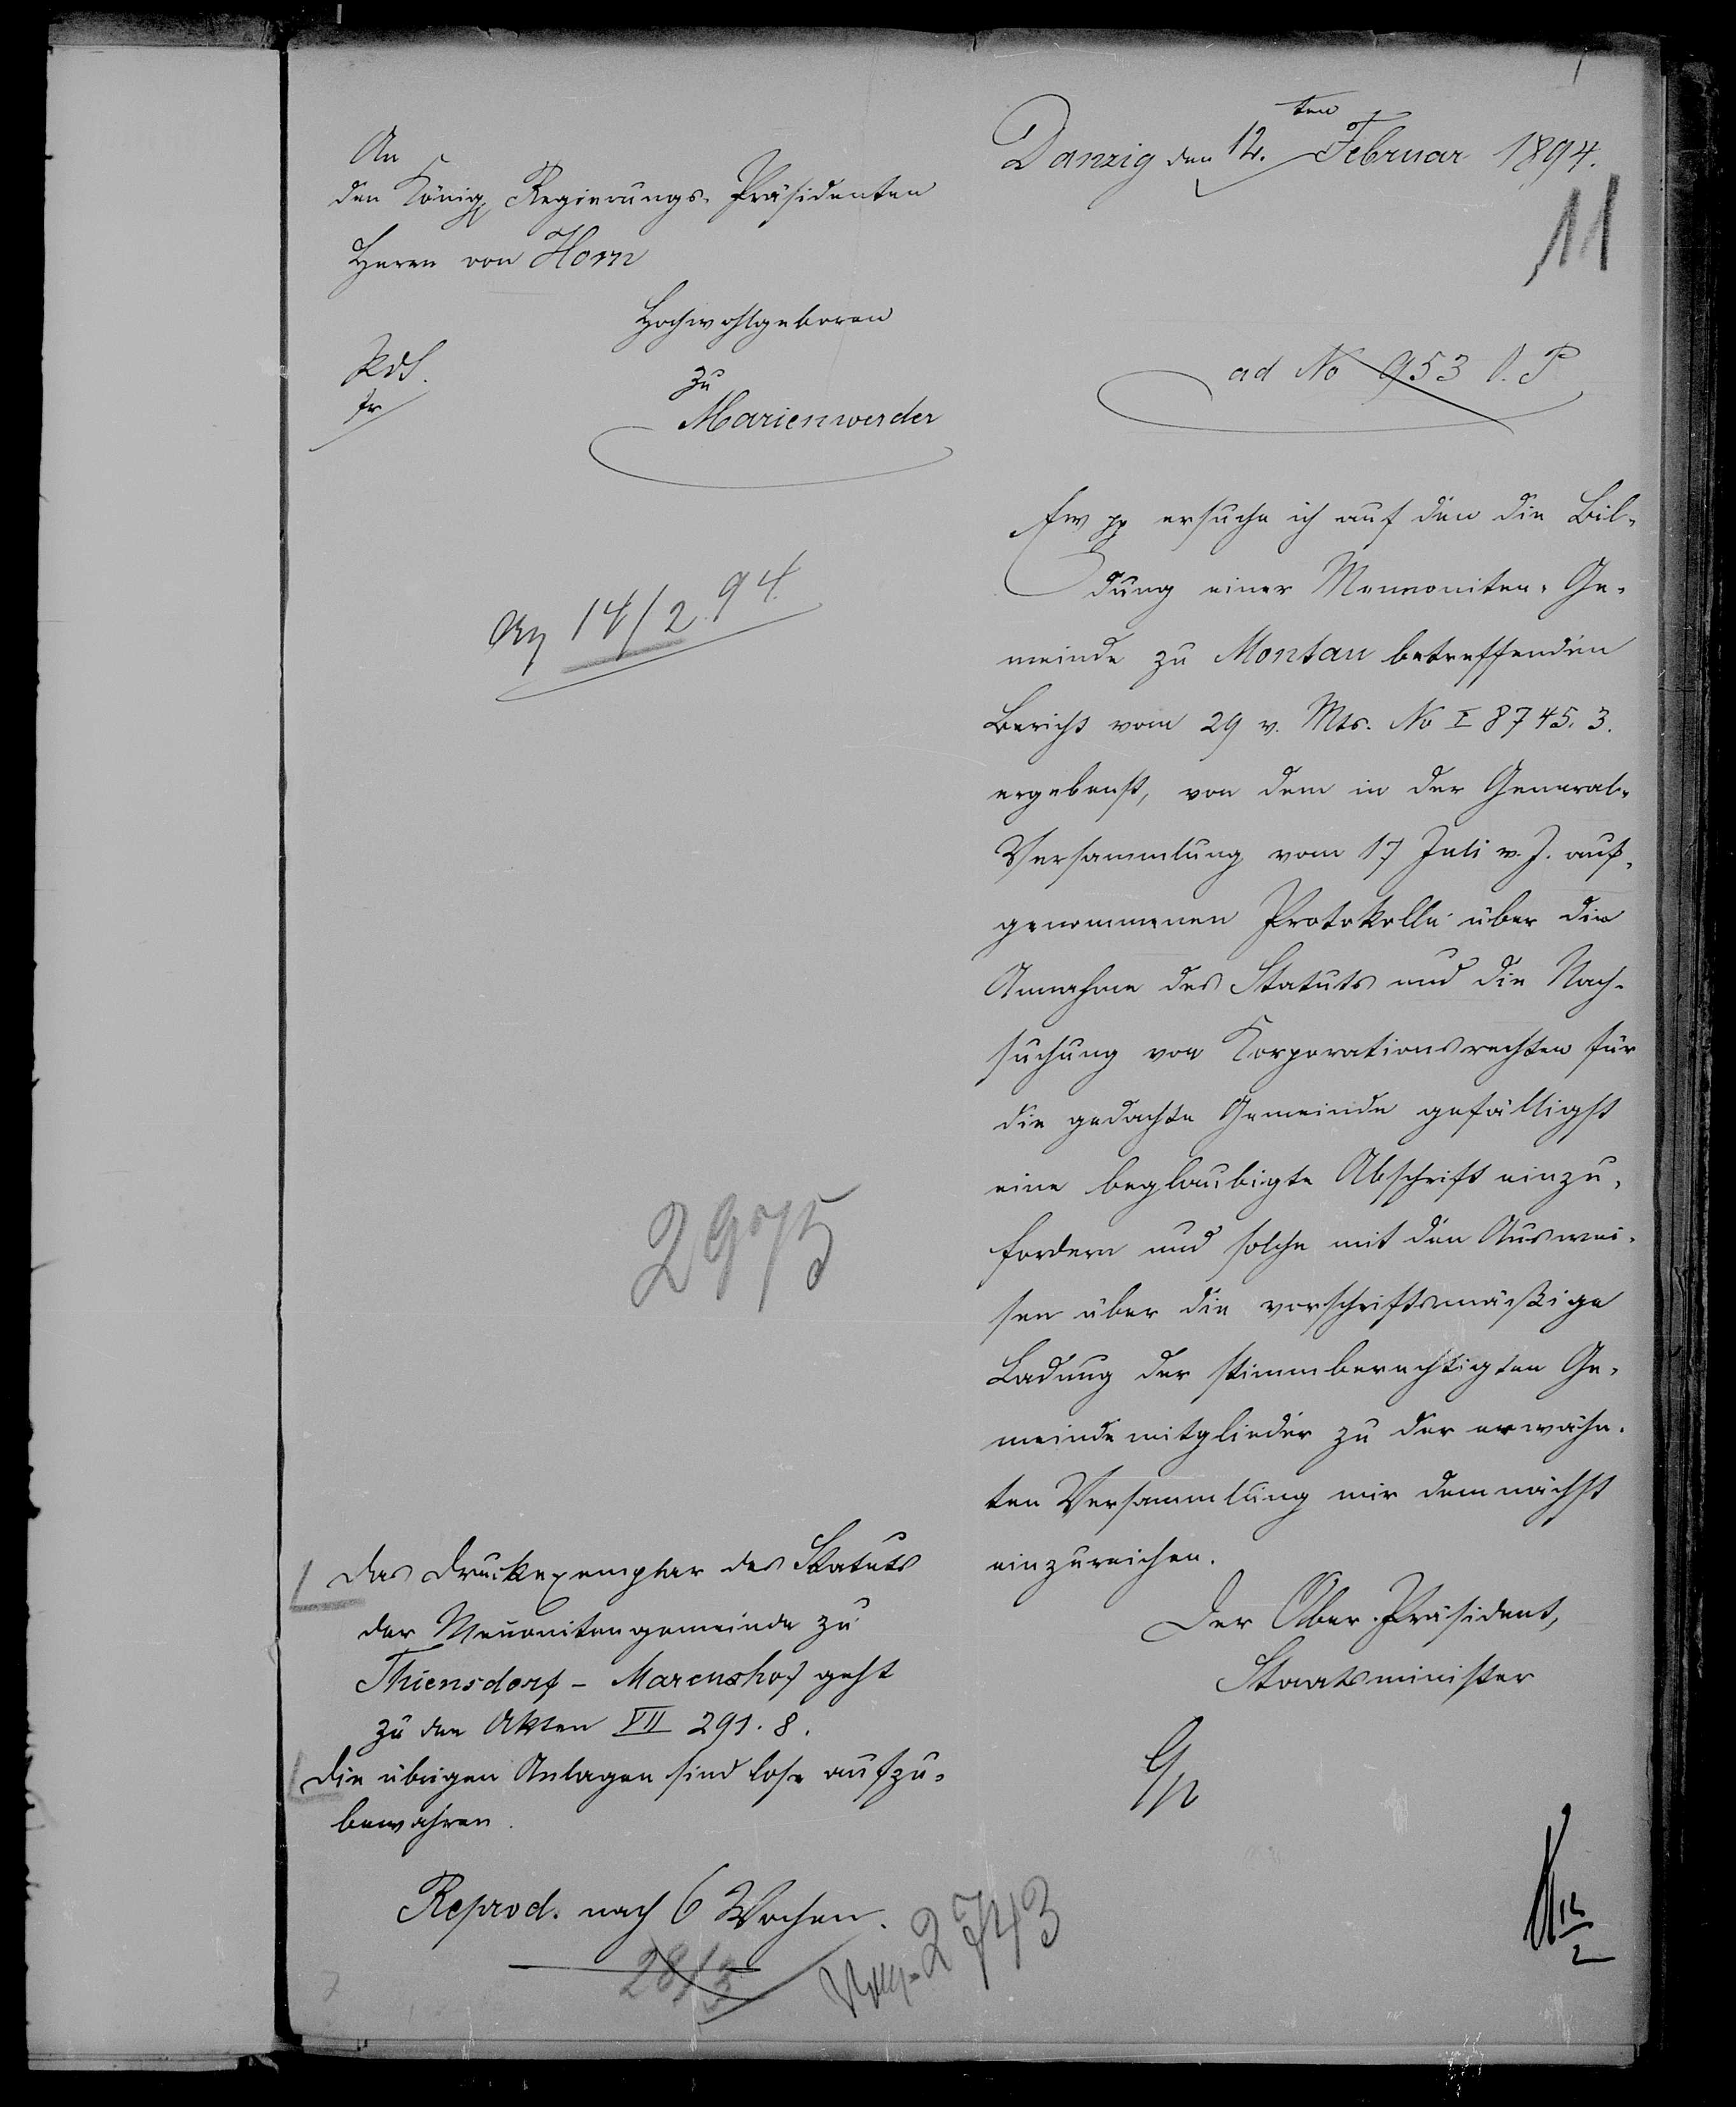 Danzig den 12.ten Februar 1894.
11
An
den Königl Regierungs-Präsidenten
Herrn von Horn
Hochwohlgeboren
zu
Marienwerder
ad No 953 O. P
14/2. 94.
Ew pp ersuche ich auf den die Bil-
dung einer Mennoniten-Ge-
meinde zu Montau betreffenden
Bericht vom 29 v. Mts. No I 8745. 3.
ergebenst, von dem in der General-
Versammlung vom 17 Juli v. J. auf-
genommenen Protokolle über die
Annahme des Statuts und die Nach-
suchung von Korporationsrechten für
die gedachte Gemeinde gefälligst
eine beglaubigte Abschrift einzu-
fordern und solche mit den Auswei-
sen über die vorschriftsmäßige
Ladung der stimmberechtigten Ge-
meindemitglieder zu der erwähn-
ten Versammlung mir demnächst
einzureichen.
Der Ober-Präsident,
Staatsminister
G
12/2
2975
Das Druckexemplar des Statuts
der Mennonitengemeinde zu
Thiensdorf - Marcushof geht
zu den Akten VII 291. 8.
Die übrigen Anlagen sind lose aufzu-
bewahren.
Reprod. nach 6 Wochen.
28/3
2743